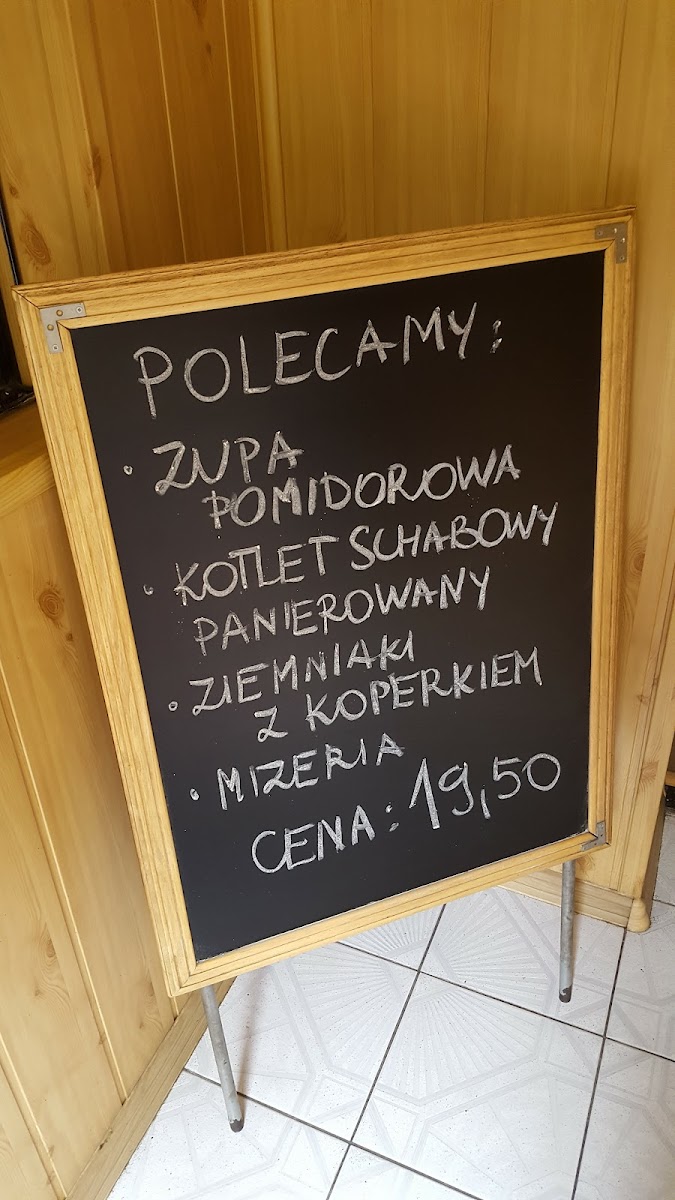 POLECAMY:
• ZUPA
POMIDOROWA
• KOTLET SCHABOWY
PANIEROWANY
• ZIEMNIAKI
Z KOPERKIEM
• MIZERIA
CENA: 19,50